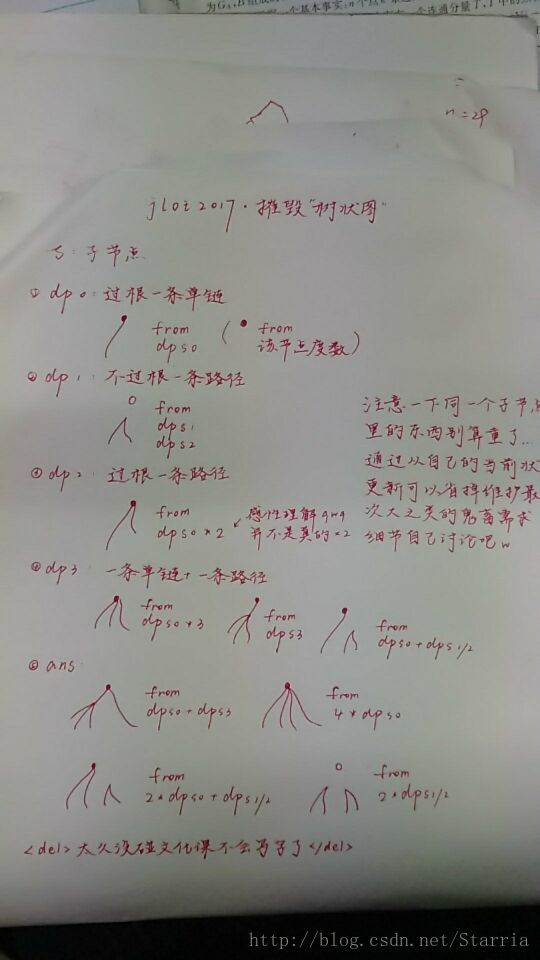 n=29
jloi2017·摧毁"树状图"
S:子节点
① dp0:过根一条单链
from
dps0
( from
该节点度数)
② dp1:不过根一条路径
from
dps1
dps2
③ dp2:过根一条路径
from
dps0*2
感性理解qwq
并不是真的*2
注意一下同一个子节点
里的东西别算重了...
通过以自己的当前状
更新可以省掉维护最
次大之类的鬼畜需求
细节自己讨论吧w
④ dp3:一条单链+一条路径
from
dps0*3
from
dps3
from
dps0+dps1/2
⑤ ans:
from
dps0+dps3
from
4*dps0
from
2*dps0+dps1/2
from
2*dps1/2
<del>太久没碰文化课不会写字了</del>
http://blog.csdn.net/Starria